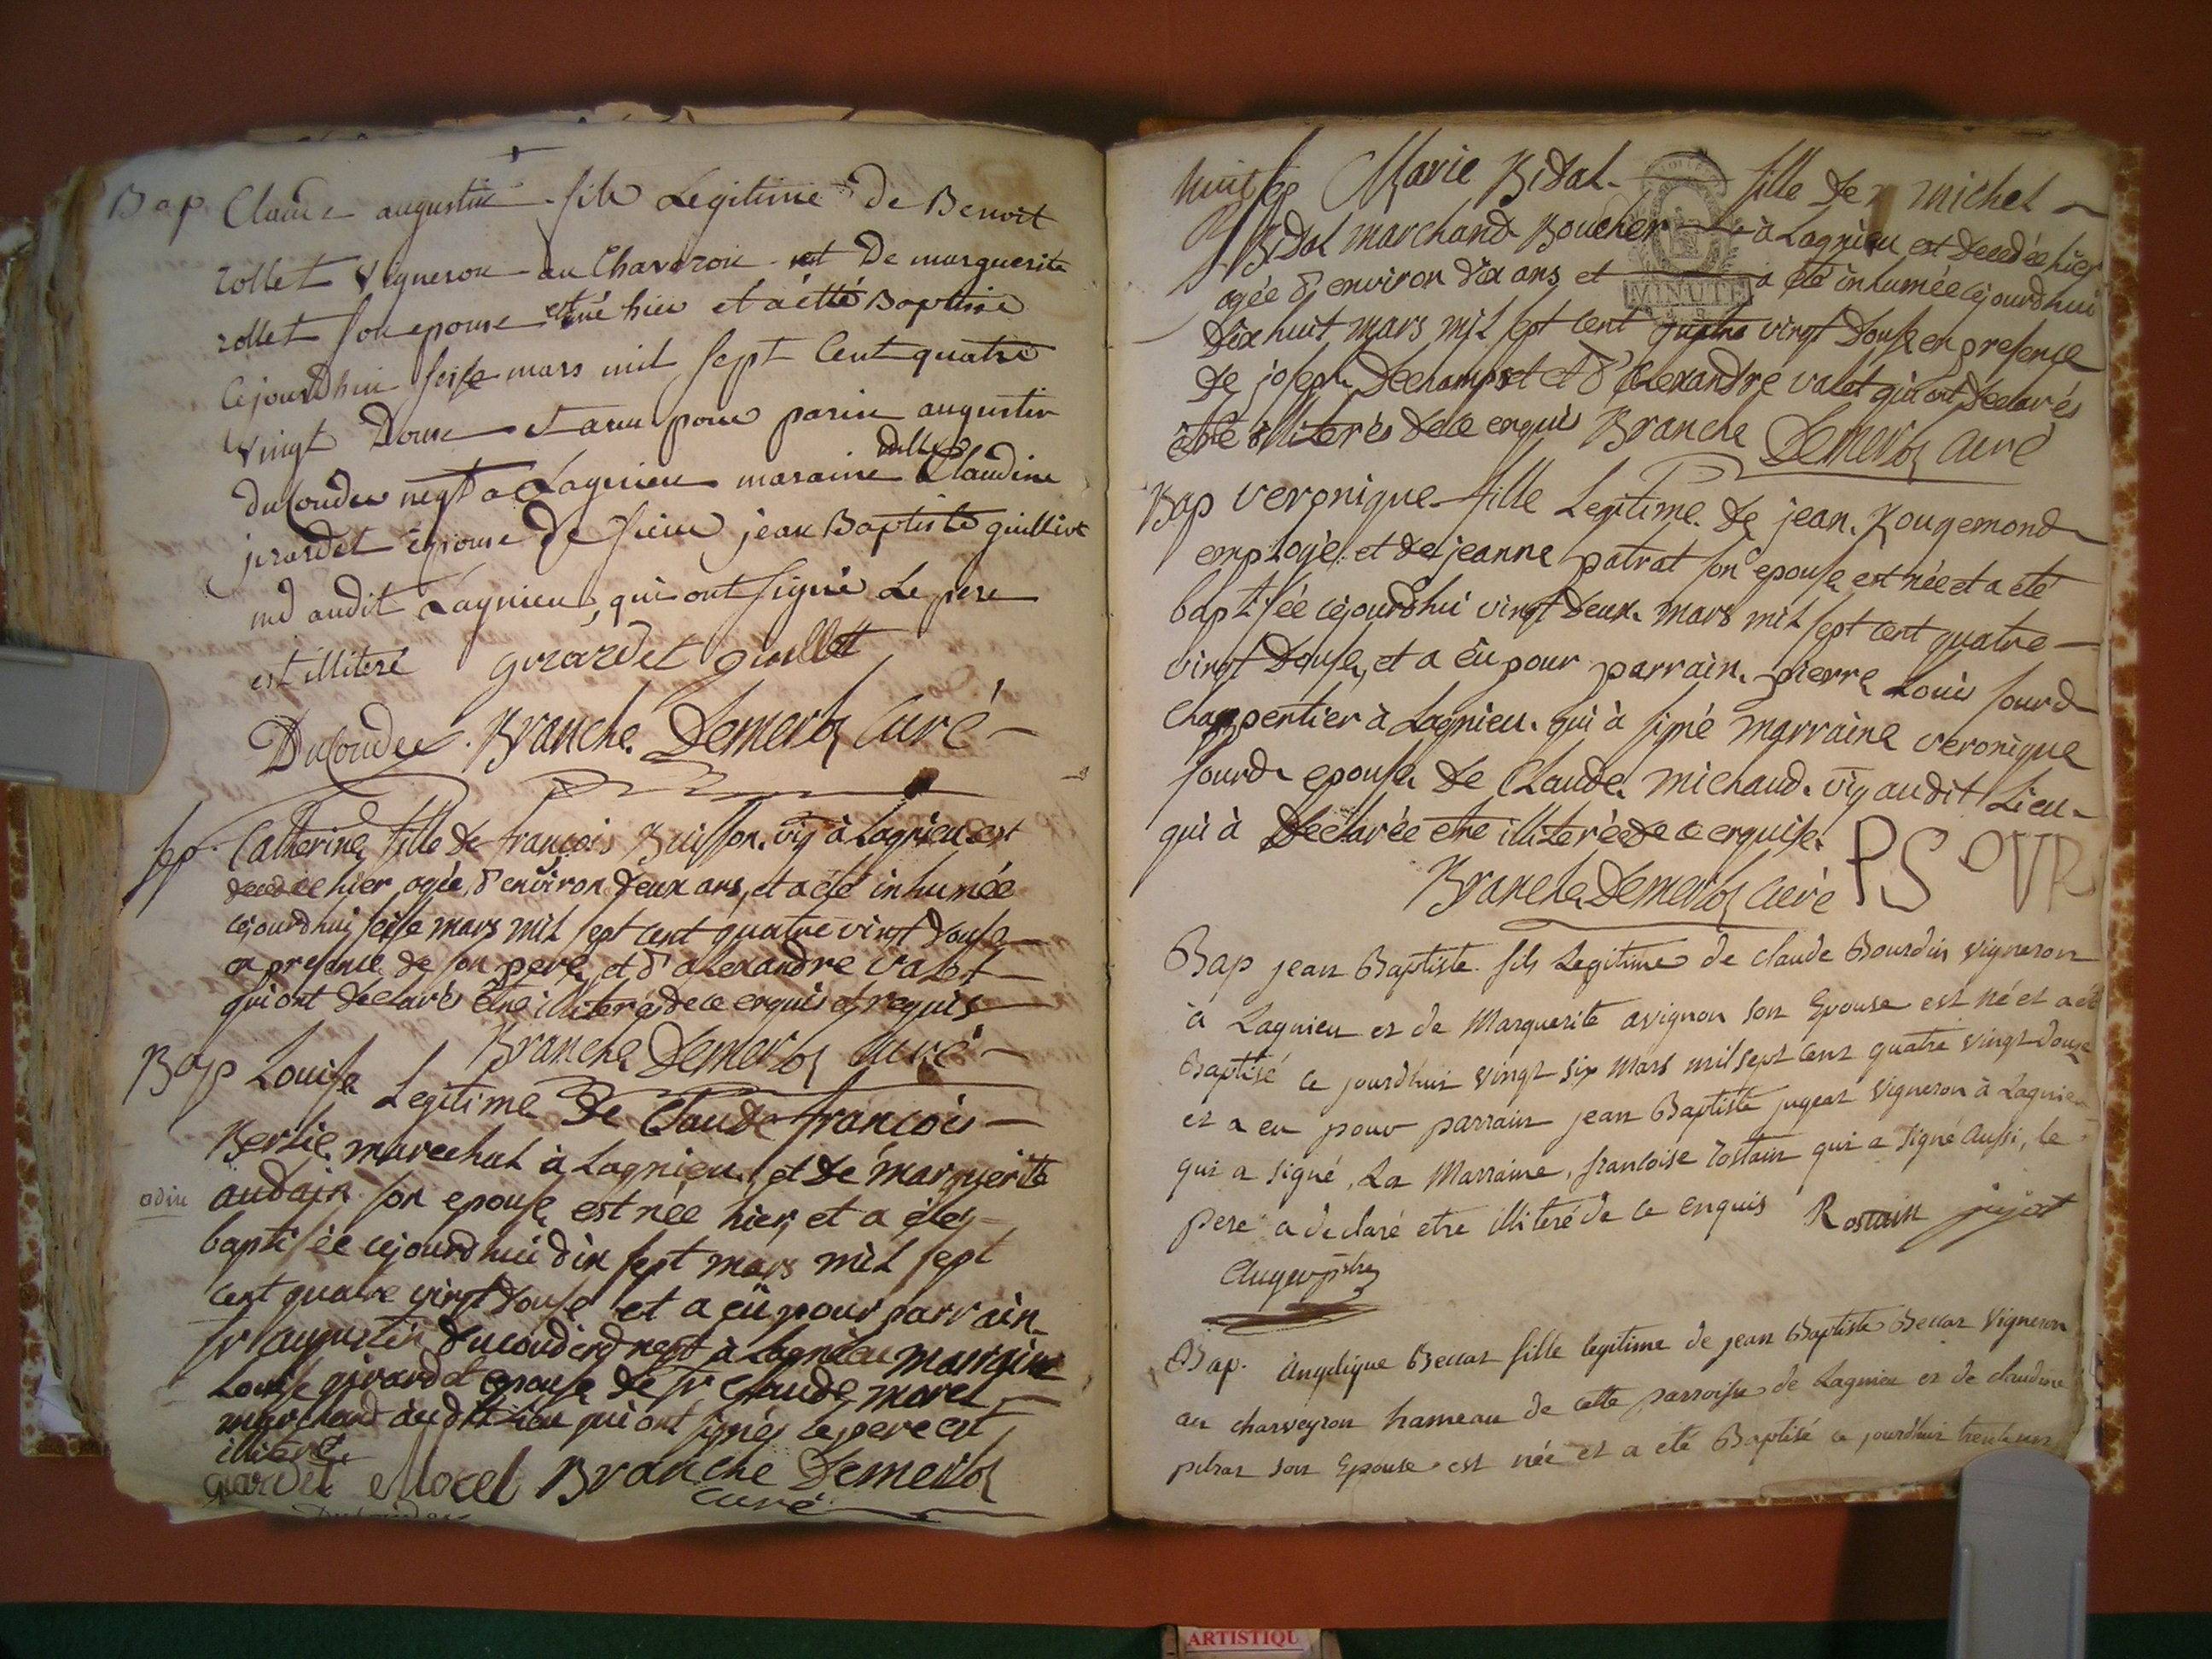 Bap Claude augustin fils Legitime de Benoit
rollet Vigneron au Charveron et De marguerite
rollet son epouse est né hier et a étté Baptisé
Cejourdhui seise mars mil sept Cent quatre
vingt Douse et a eu pour parin augustin
duCouder negt a Lagnieu maraine dlle Claudine
jirardet épouse de sieur jean Baptiste guillive
md audit Lagnieu, qui ont signé Le pere
est illiteré girardet guillot
DuCouder Branche Demerloz Curé
sep. Catherine fille de françois Buisson vig à Lagnieu est
decedee hier agée d'environ deux ans, et a été inhumée
cejourdhui seise mars mil sept cent quatre vingt douse
en presence de son pere, et d'alexandre valot
qui ont declarés être illiterés de ce enquis et requis
Branche Demerloz Curé
Bap Louise Legitime De Claude françois
Berlie marechal à Lagnieu, et de marguerite
odin audain son epouse est née hier, et a été
baptisée cejourdhui dix sept mars mil sept
cent quatre vingt douse et a eü pour parrain
sr augustin ducouderd negt à Lagnieu marraine
Louise girardet epouse de sr Claude morel
marchand audit Lieu qui ont signés le pere est
illiteré
girardet Morel Branche Demerloz
Ducouder curé
huit sep Marie Bidal fille de michel
Bidal marchand Boucher à Lagnieu est decedée hier
agée d'environ dix ans et a été inhumée cejourdhui
MINUTE
Dix huit mars mil sept cent quatre vingt Douse en presence
de joseph Dechampset et d'alexandre valot qui ont declarés
être illiterés de ce enquis Branche Demerloz Curé
Bap veronique fille Legitime de jean Rougemond
emploié et de jeanne patrat son epouse est née et a été
baptisée cejourdhui vingt deux mars mil sept cent quatre
vingt Douse, et a êu pour parrain pierre Louis sourd
charpentier à Lagnieu qui à signé marraine veronique
sourd epouse de Claude michaud vig audit Lieu
qui à declarée etre illiterée de ce enquise
Branche Demerloz Curé PSOVR
Bap jean Baptiste fils Legitime de claude Bourdin vigneron
à Lagnieu et de Marguerite avignon son Epouse est né et a été
Baptisé ce jourdhui vingt six mars mil sept cent quatre vingt douse
et a eu pour parrain jean Baptiste jugeat vigneron à Lagnieu
qui a signé, La Marraine, francoise rostain qui a signé aussi, le
pere a declaré etre illiteré de ce enquis Rostain jujat
Auger ptre
Bap. Angelique Beccat fille legitime de jean Baptiste Beccat vigneron
au charveyron hameau de cette parroisse de Lagnieu et de claudine
petrat son Epouse est née et a été Baptisé ce jourdhui trente un
ARTISTIQU